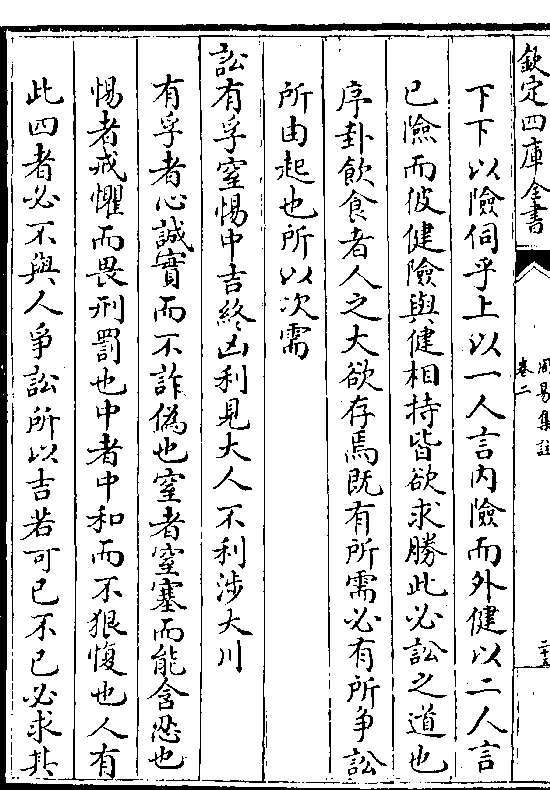 欽定四庫全書
周易集註
卷二
二十五
下下以險伺乎上以一人言内險而外健以二人言
已險而彼健險與健相持皆欲求勝此必訟之道也
序卦飲食者人之大欲存焉既有所需必有所爭訟
所由起也所以次需
訟有孚窒惕中吉終凶利見大人不利涉大川
有孚者心誠實而不詐偽也窒者窒塞而能含忍也
惕者戒懼而畏刑罰也中者中和而不狠愎也人有
此四者必不與人爭訟所以吉若可已不已必求其